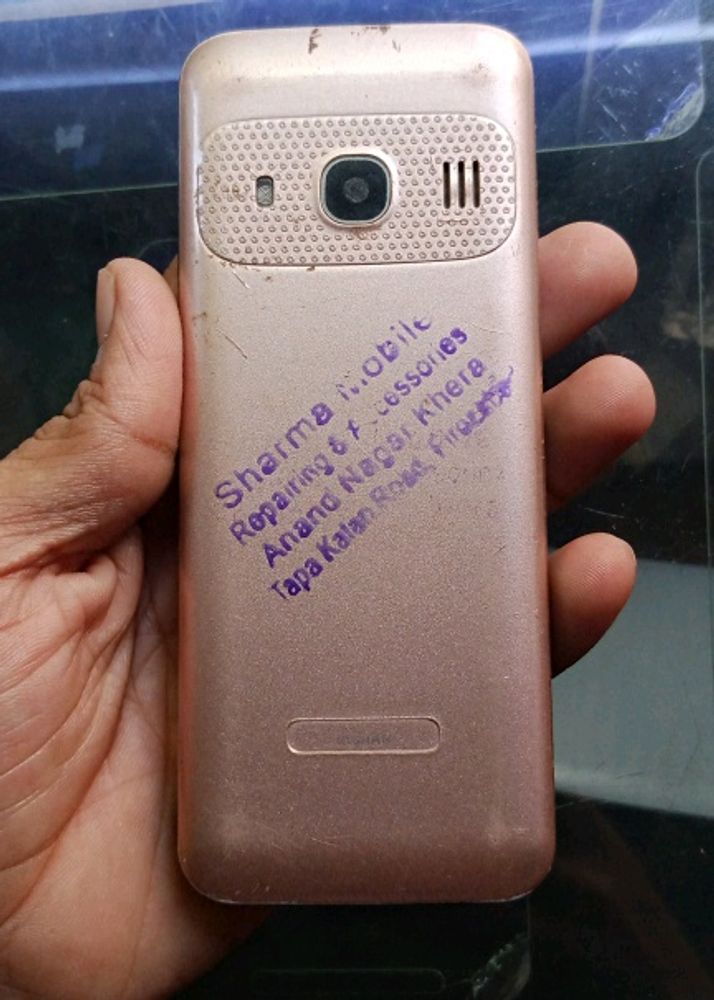 Sharma Mobile
Repairing & Accessories
Anand Nagar Khera
Tapa Kalan Road, Firozabad